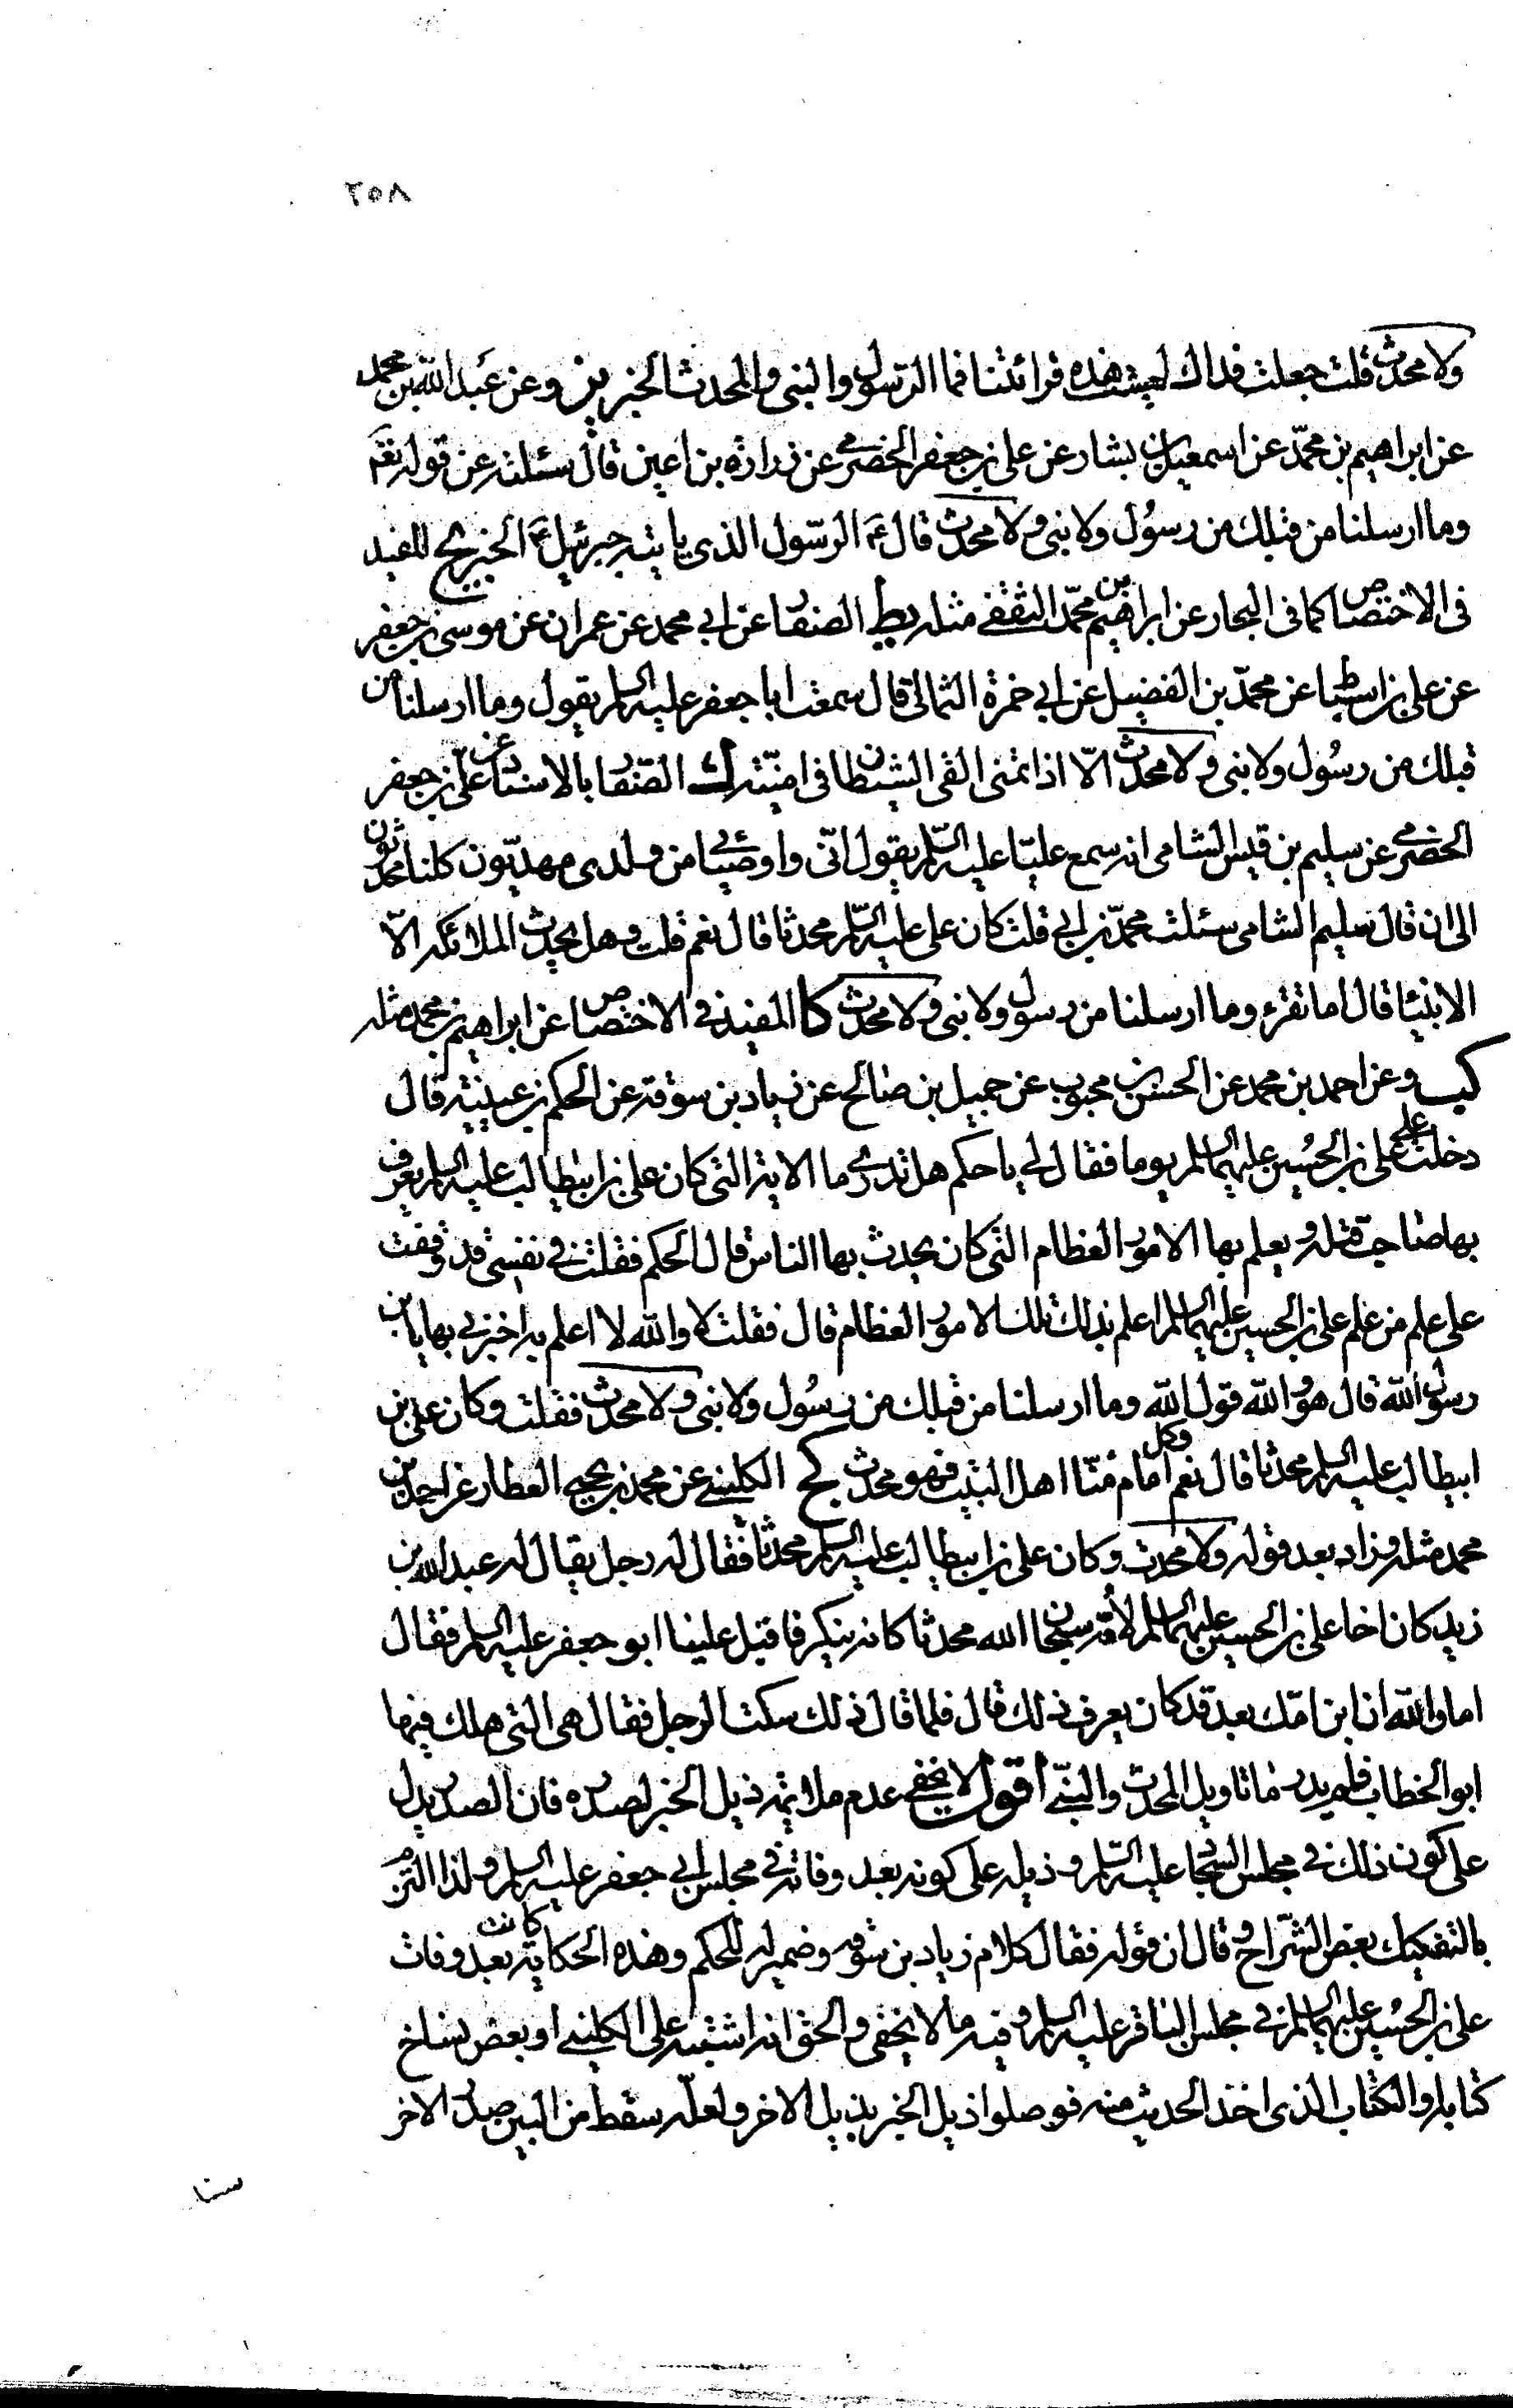 ٢٥٨
ولا محدث قلت جعلت فداك ليست هذه قرائتنا فما الرسول والنبى والمحدث الخبر يز وعن عبد الله بن محمد
عن ابراهيم بن محمّد عن اسمعيل بن بشار عن على بن جعفر الحضرمى عن زرارة بن اعين قال سئلته عن قوله تعم
وما ارسلنا من قبلك من رسُول ولا نبى ولا محدث قال ع الرّسول الذى ياتيه جبرئيل ع الخبر يح المفيد
فى الاختصاص كما فى البحار عن ابراهيم بن محمّد الثقفى مثله يط الصفار عن ابى محمد عن عمران عن موسى بن جعفر
عن على بن اسباط عن محمّد بن الفضيل عن ابى حمزة الثمالى قال سمعت ابا جعفر عليه السلم يقول وما ارسلنا من
قبلك من رسُول ولا نبى ولا محدث الّا اذا تمنى القى الشيطان فى امنيّته ك الصّفار بالاسناد عن على بن جعفر
الحضرمى عن سليم بن قيس الشامى انه سمع عليّا عليه السّلم يقول انّى واوصيائى من ولدى مهديّون كلنا محدثون
الى ان قال سليم الشامى سئلت محمّد بن ابى قلت كان على عليه السّلم محدثا قال نعم قلت وهل يحدث الملائكه الّا
الانبياء قال اما تقرء وما ارسلنا من رسول ولا نبى ولا محدث كا المفيد فى الاختصاص عن ابراهيم بن محمد مثله
كب وعن احمد بن محمد عن الحسن بن محبوب عن جميل بن صالح عن زياد بن سوقه عن الحكم بن عيينه قال
دخلت على على بن الحُسين عليهما السلم يوما فقال لى يا حكم هل تدرى ما الاية التى كان على بن ابيطالب عليه السلم يعرف
بها صاحب قتله ويعلم بها الامور العظام التى كان يحدث بها الناس قال الحكم فقلت فى نفسى قد وقفت
على علم من علم على بن الحسين عليهما السلم اعلم بذلك تلك الامور العظام قال فقلت لا والله لا اعلم به اخبرنى بها يابن
رسول الله قال هو والله قول الله وما ارسلنا من قبلك من رسُول ولا نبى ولا محدث فقلت وكان على بن
ابيطالب عليه السلم محدثا قال نعم وكل امام منّا اهل البيت فهو محدث كج الكلينى عن محمد بن يحيى العطار عن احمد بن
محمد مثله وزاد بعد قوله ولا محدث وكان على بن ابيطالب عليه السلم محدثا فقال له رجل يقال له عبد الله بن
زيد كان اخا على بن الحسين عليهما السلم لأمّه سبحان الله محدثا كانه ينكر فاقبل علينا ابو جعفر عليه السلم فقال
اما والله ان ابن امّك بعد قد كان يعرف ذلك قال فلما قال ذلك سكت الرجل فقال هى التى هلك فيها
ابو الخطاب فلم يدر ما تاويل المحدث والنبىّ أقول لا يخفى عدم ملائمة ذيل الخبر لصدره فان الصدر يدل
على كون ذلك فى مجلس السجاد عليه السّلم وذيله على كونه بعد وفاته فى مجلس ابى جعفر عليه السلم ولذا التزم
بالتفكيك بعض الشّراح وقال ان قوله فقال كلام زياد بن سوقه وضمير له للحكم وهذه الحكاية كانت بعد وفات
على بن الحُسين عليهما السلم فى مجلس الباقر عليه السلم وفيه ما لا يخفى والحق انه اشتبه على الكلينى او بعض نساخ
كتابه او الكتاب الذى اخذ الحديث منه فوصلوا ذيل الخبر بذيل الاخر ولعلّه سقط من البين صدر الاخر